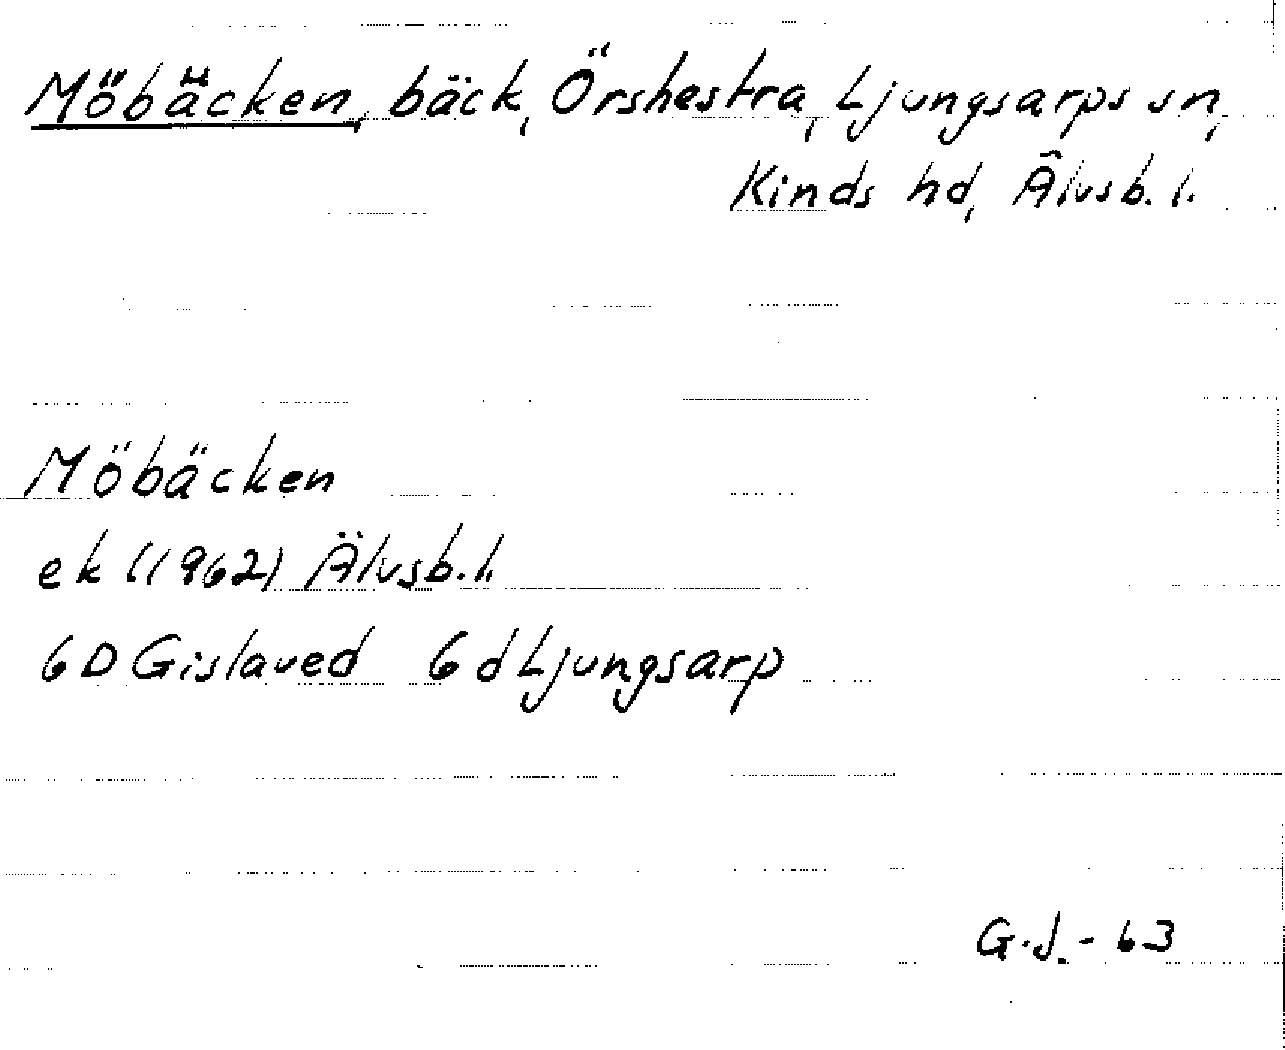 Möbäcken, bäck, Örshestra, Ljungsarps sn,
Kinds hd, Älvsb. l.
Möbäcken
ek (1962) Älvsb. l.
6D Gislaved 6d Ljungsarp
G.J. - 63